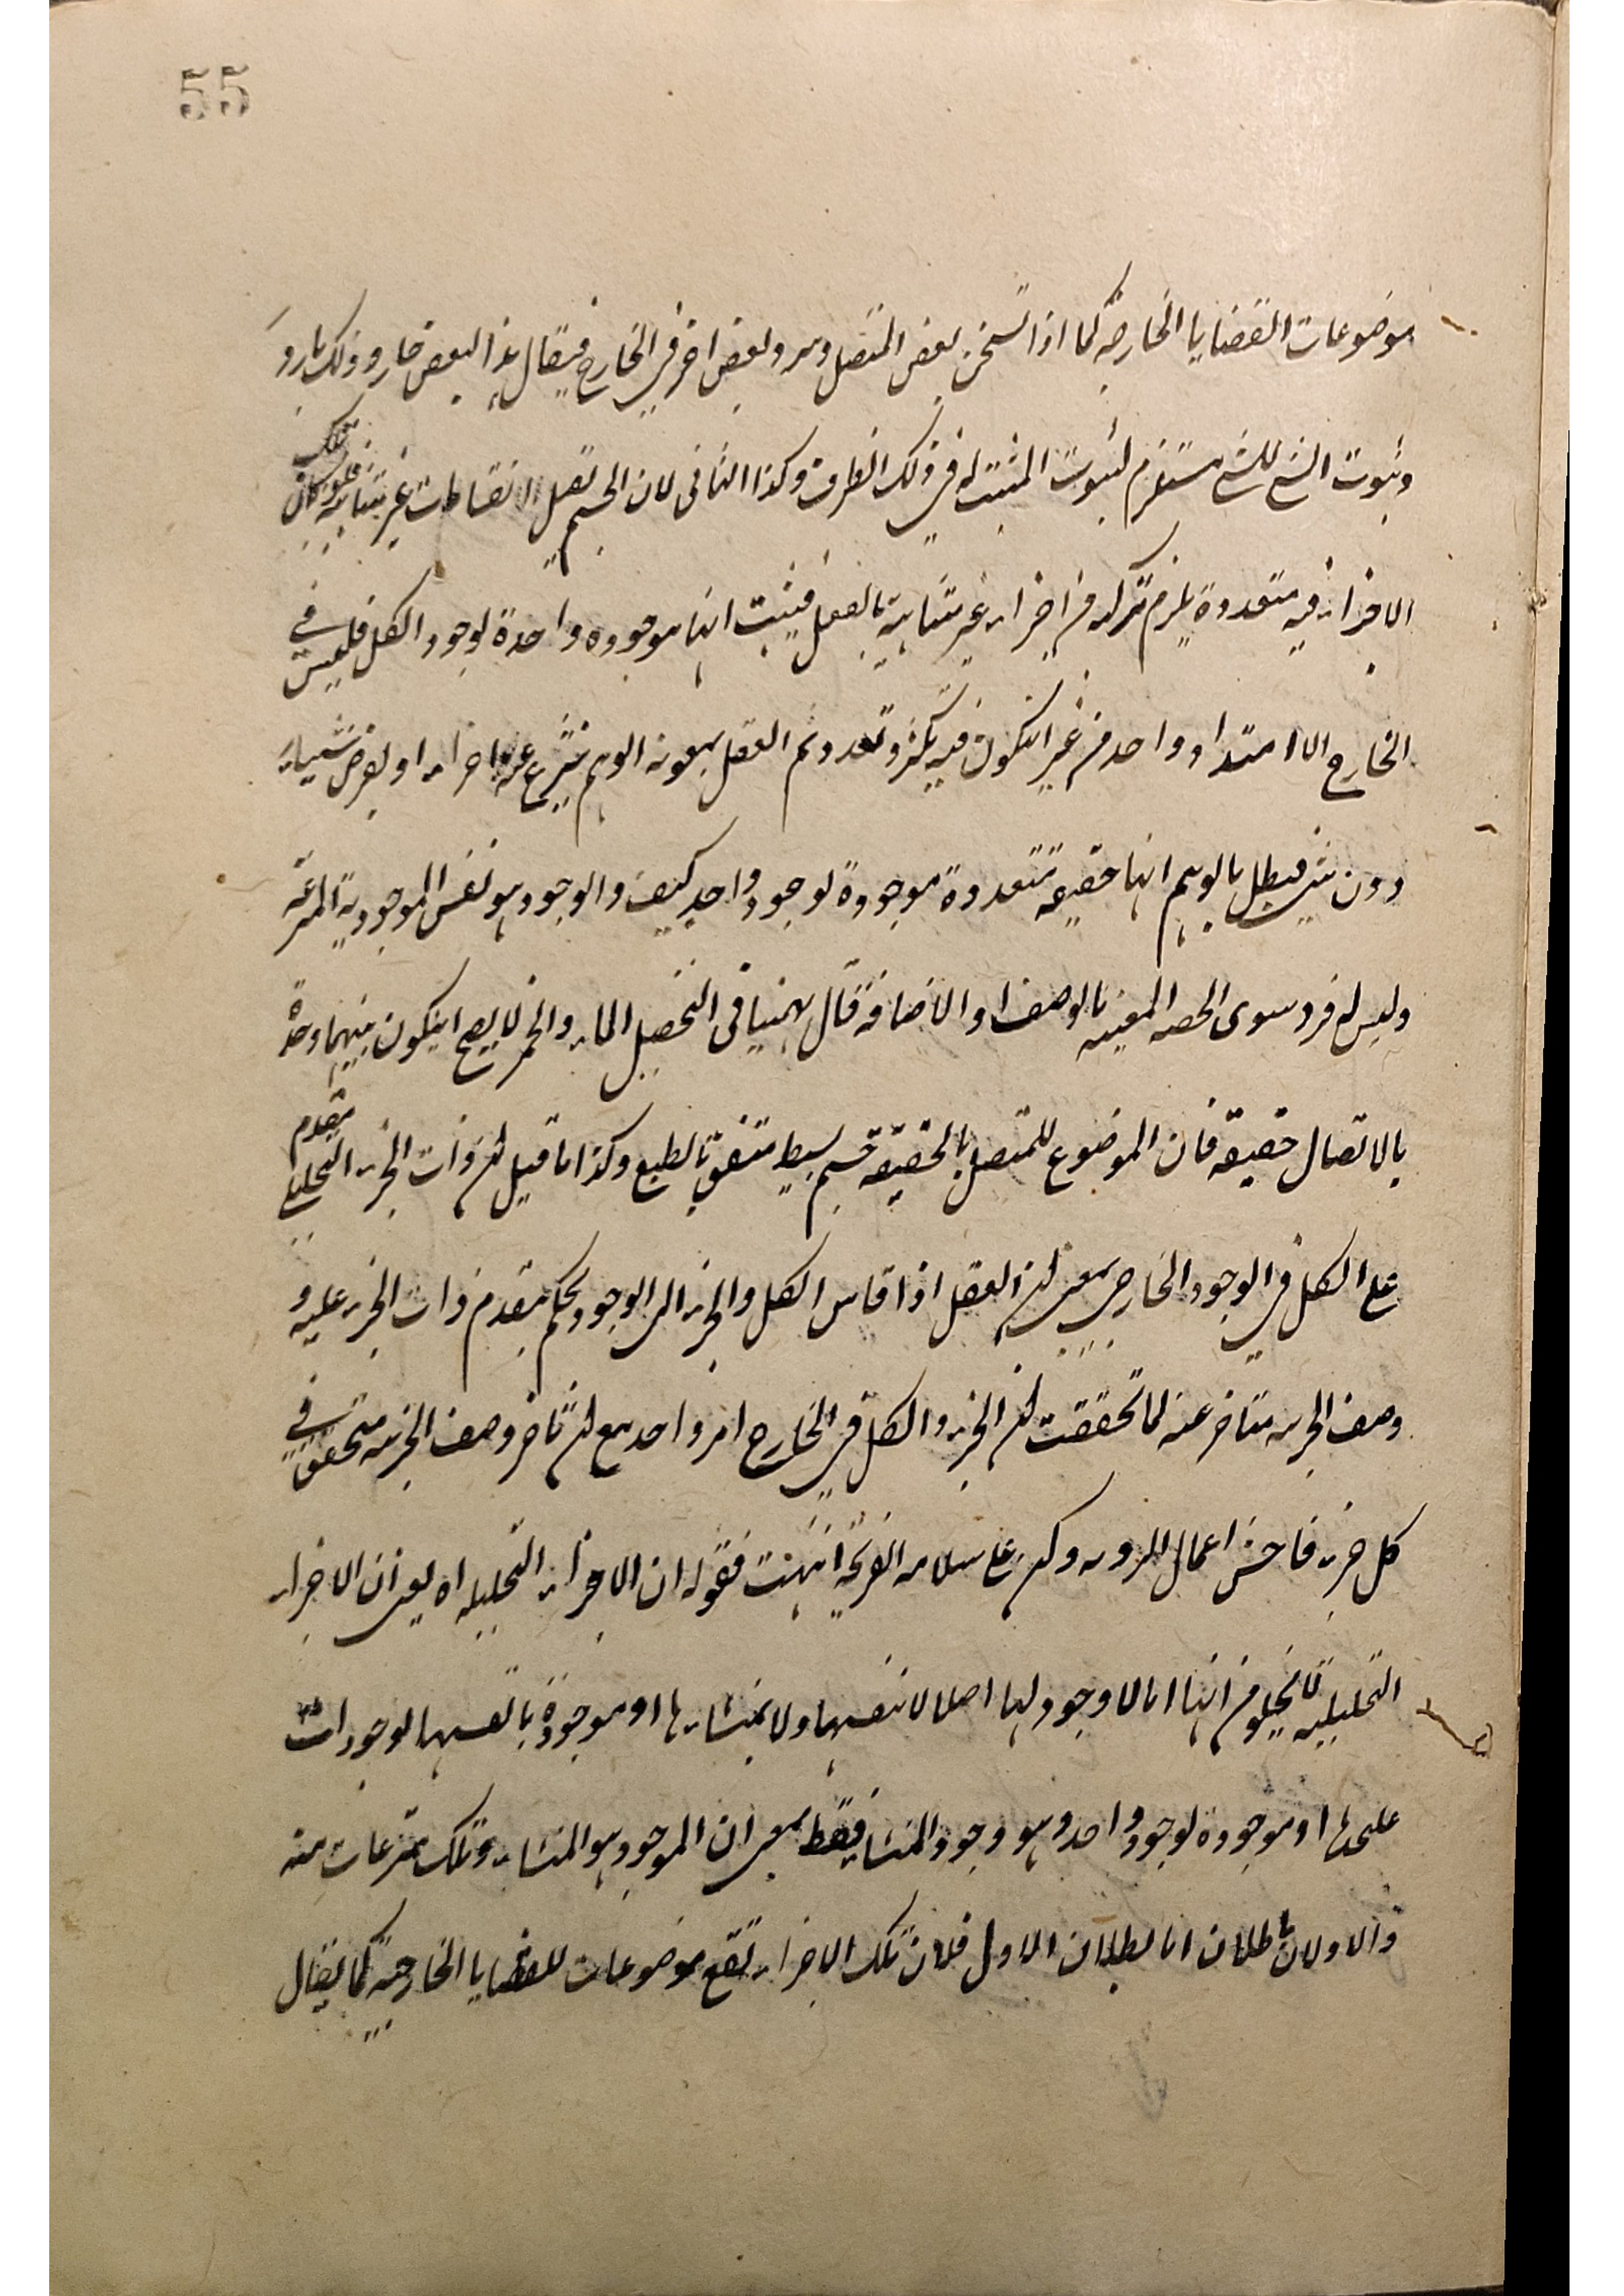 55
موضوعات القضايا الخارجية كما اذا تسخن بعض المتصل وبرد بعض اخر في الخارج فيقال هذا البعض حار وذلك بارد
وثبوت الشئ للشئ مستلزم لثبوت المثبت له في ذلك الظرف وكذا الثاني لان الجسم يقبل الانقسامات غير متناهية فلو كان تلك
الاجزاء فيه متعددة يلزم تركبه من اجزاء غير متناهية بالفعل فيثبت انها موجودة واحدة لوجود الكل فليس في
الخارج الا امتداد واحد من غير ان يكون فيه تكثر وتعدد ثم العقل بمعونة الوهم ينتزع عنه اجزاء او يفرض شيئا
دون شئ فبطل بالوهم انها حقيقة متعددة موجودة لوجود واحد كيف والوجود هو نفس الموجودية
وليس له فرد سوى الحصة المعينة بالوصف او الاضافة قال بهمنيار في التحصيل الماء والخمر لا يصح ان يكون بينهما وحدة
بالاتصال حقيقة فان الموضوع للمتصل بالحقيقة جسم بسيط متفق بالطبع وكذا ما قيل ان ذات الجزء التحليلي مقدم
على الكل في الوجود الخارجي بمعنى ان العقل اذا قاس الكل والجزء الى الوجود يحكم بتقدم ذات الجزء عليه و
وصف الجزئية متاخر عنه لما تحققت ان الجزء والكل في الخارج امر واحد مع ان تاخر وصف الجزئية متحقق في
كل جزء فاحسن اعمال الروية وكن على سلامة القريحة انتهت فقوله ان الاجزاء التحليلية اه يعني ان الاجزاء
التحليلية لا يخلو من انها اما لا وجود لها اصلا لا بنفسها ولا بمنشاءها او موجودة بانفسها لوجودات
عليحدة او موجودة لوجود واحد وهو وجود المنشا فقط بمعنى ان الموجود هو المنشاء وتلك منتزعات منه
والاولان باطلان اما بطلان الاول فلان تلك الاجزاء تقع موضوعات للقضايا الخارجية كما يقال